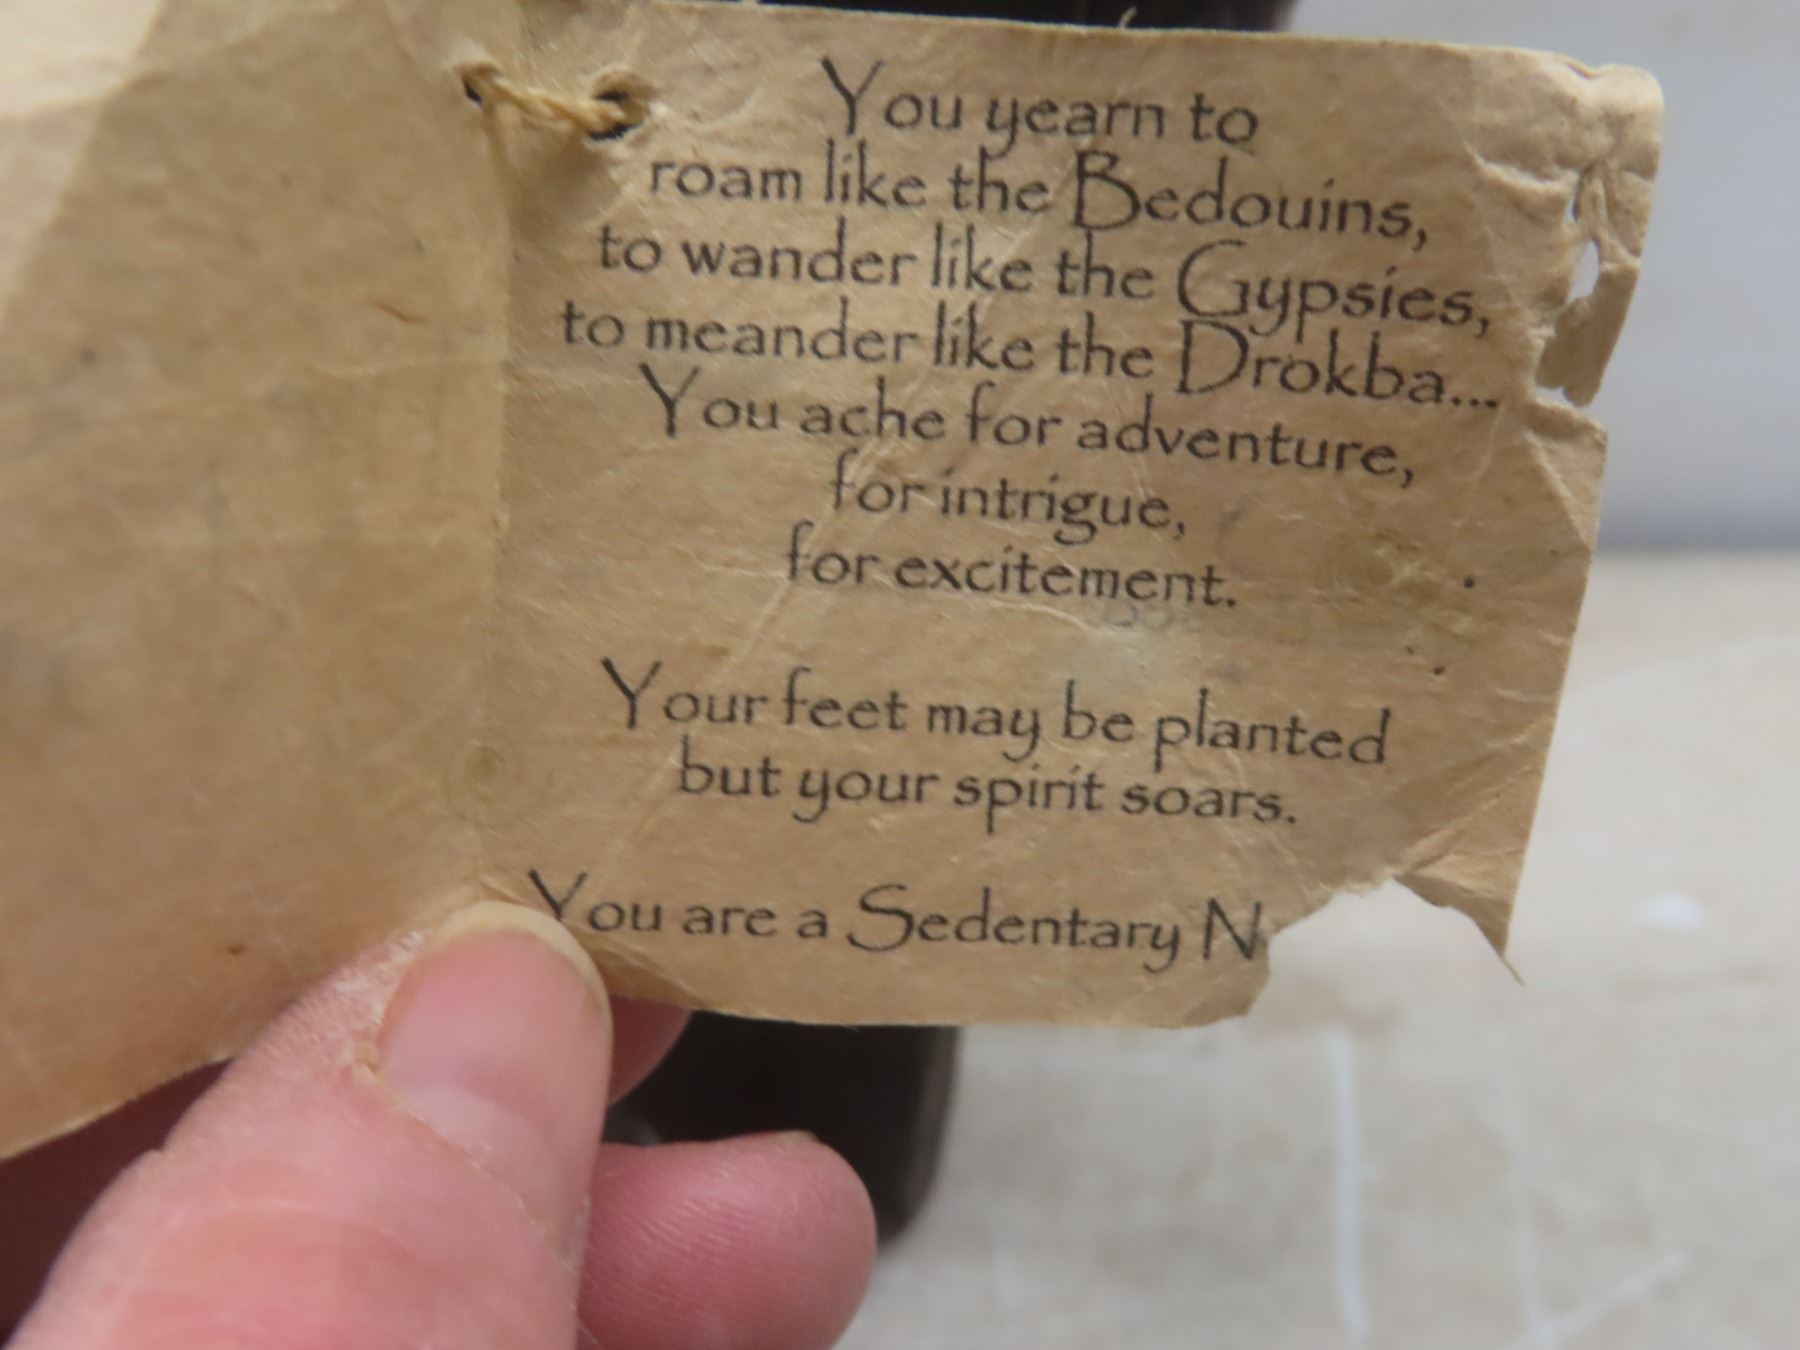 You yearn to
roam like the Bedouins,
to wander like the Gypsies,
to meander like the Drokba...
You ache for adventure,
for intrigue,
for excitement.
Your feet may be planted
but your spirit soars.
You are a Sedentary N